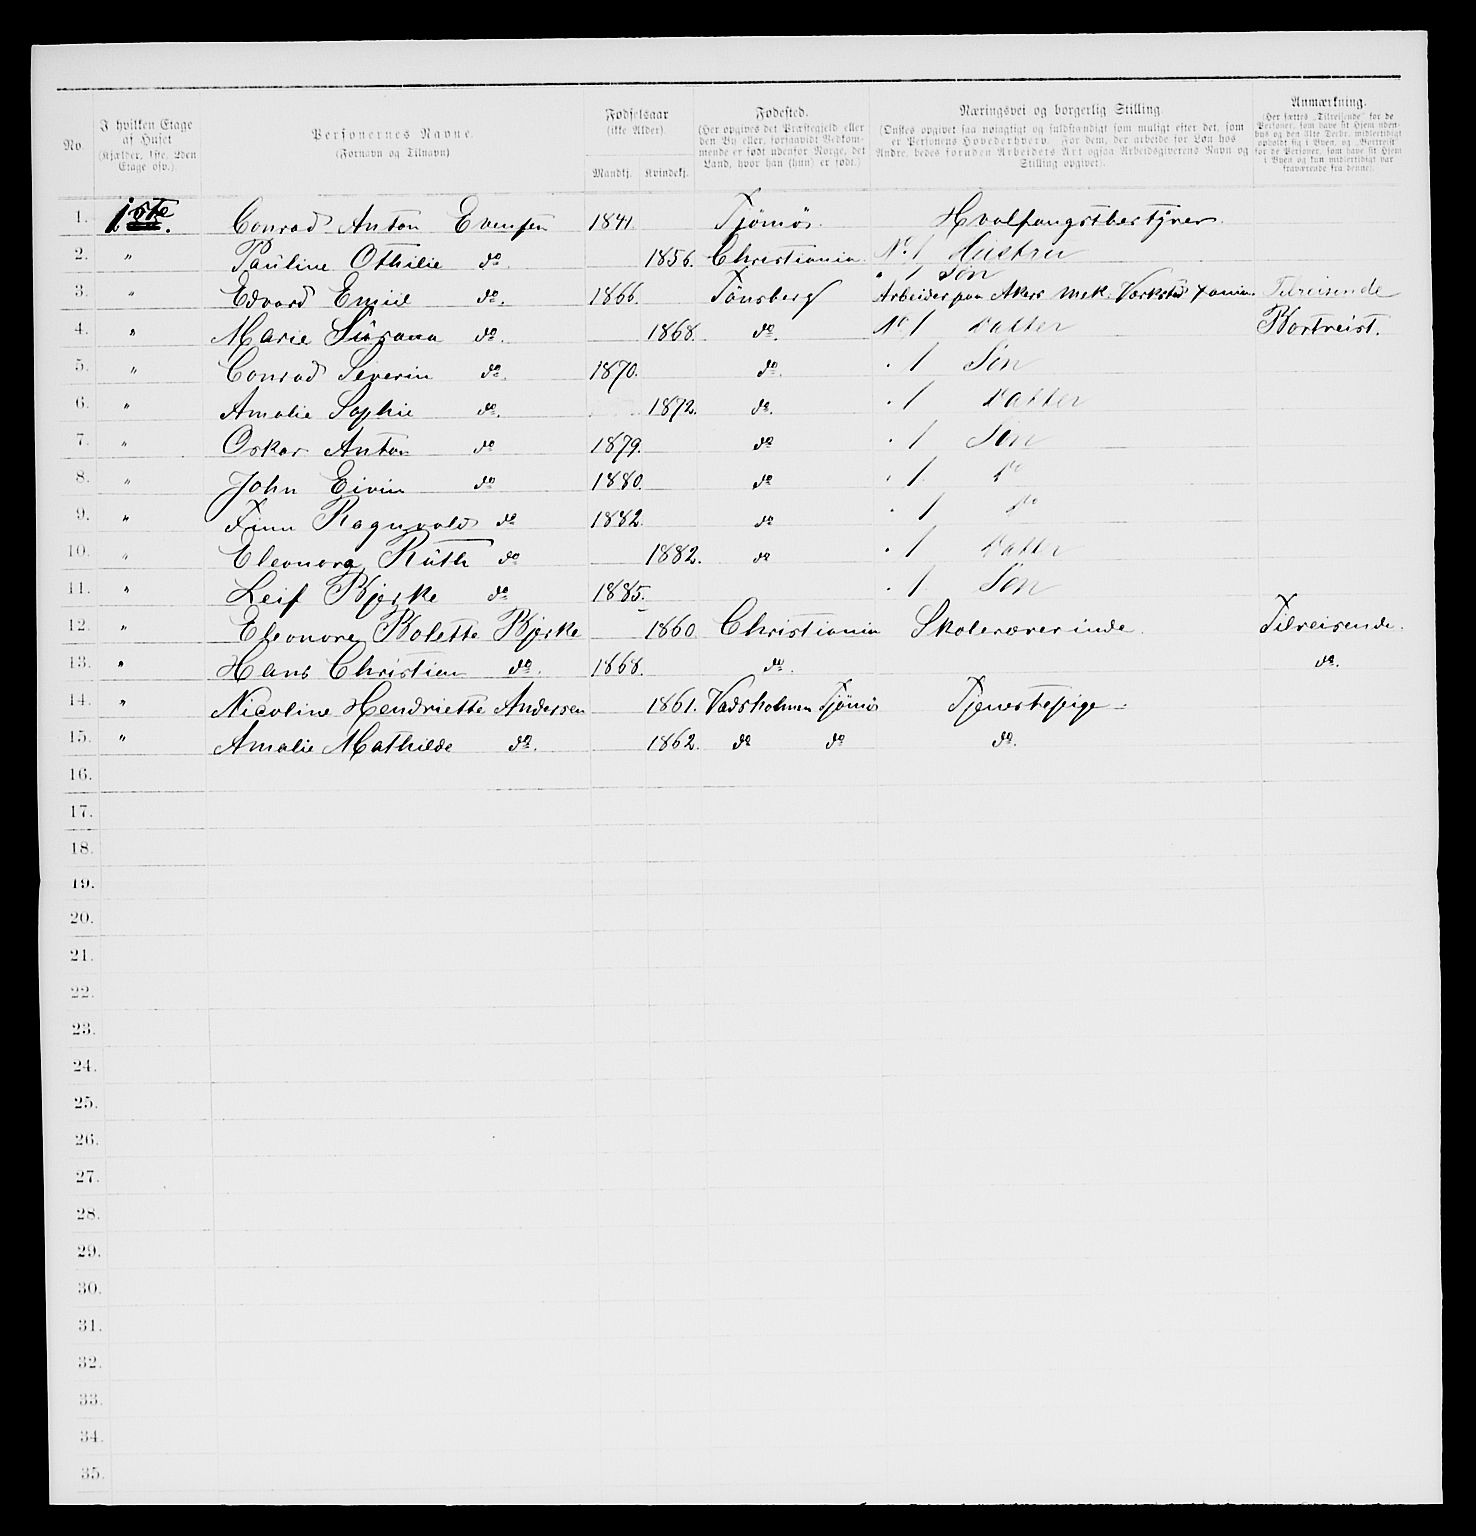 No.
I hvilken Etage af Huset (Kjælder, 1ste, 2den Etage osv.).
Personernes Navne. (Fornavn og Tilnavn)
Fødselsaar (ikke Alder). Mandkj. Kvindekj.
Fødested. (Her opgives det Præstegjeld eller den By eller, forsaavidt Vedkommende er født udenfor Norge, det Land, hvor han (hun) er født.)
Næringsvei og borgerlig Stilling. (Ønskes opgivet saa nøiagtigt og fuldstændigt som muligt efter det, som er Personens Hovederhverv. For dem, der arbeide for Løn hos Andre, bedes foruden Arbeidets Art ogsaa Arbeidsgiverens Navn og Stilling opgivet.)
Anmærkning. (Her sættes „Tilreisende" for de Personer, som have sit Hjem udenbys og den 31te Decbr. midlertidigt opholdt sig i Byen, og „Bortreist" for de Personer, som have sit Hjem i Byen og kun midlertidigt var fraværende fra denne).
1. 1ste. Conrad Anton Evensen 1841. Tjømø. Hvalfangstbestyrer.
2. " Pauline Othilie do. 1856. Christiania. No. 1 Hustru
3. " Edvard Emiil do. 1866. Tønsberg " 1 Søn Arbeider paa Akers mek. Værksted Xania. Tilreisende
4. " Marie Susana do. 1868. do. No. 1 Datter Bortreist.
5. " Conrad Severin do. 1870. do. " 1 Søn
6. " Amalie Sophie do. 1872. do. " 1 Datter
7. " Oskar Anton do 1879. do " 1 Søn
8. " John Eivin do 1880. do " 1 do
9. " Finn Ragnvald do 1882. do " 1 do
10. " Eleonora Ruth do 1882. do " 1 Datter
11. " Leif Bjerke do 1885. " 1 Søn
12. " Eleonore Bolette Bjerke 1860 Christiania Skolelærerinde. Tilreisende.
13. " Hans Christian do. 1868. do. do.
14. " Nicoline Hendriette Andersen 1861. Vadsholmen Tjømø Tjenestepige
15. " Amalie Mathilde do. 1862. do do do.
16.
17.
18.
19.
20.
21.
22.
23.
24.
25.
26.
27.
28.
29.
30.
31.
32.
33.
34.
35.